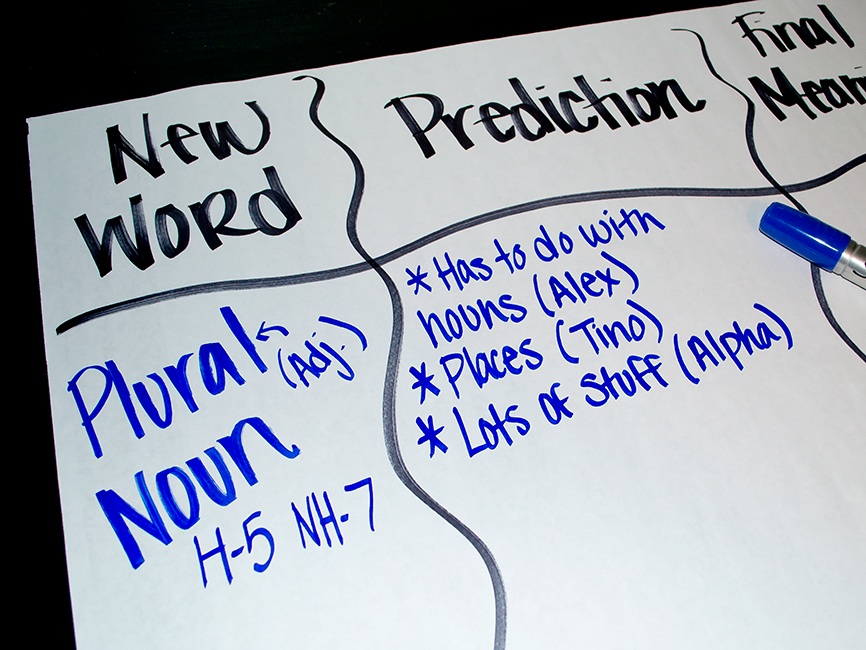 New
Word
Prediction
Final
Mean
Plural
(Adj.)
Noun
H-5 NH-7
* Has to do with
nouns (Alex)
* Places (Tino)
* Lots of Stuff (Alpha)